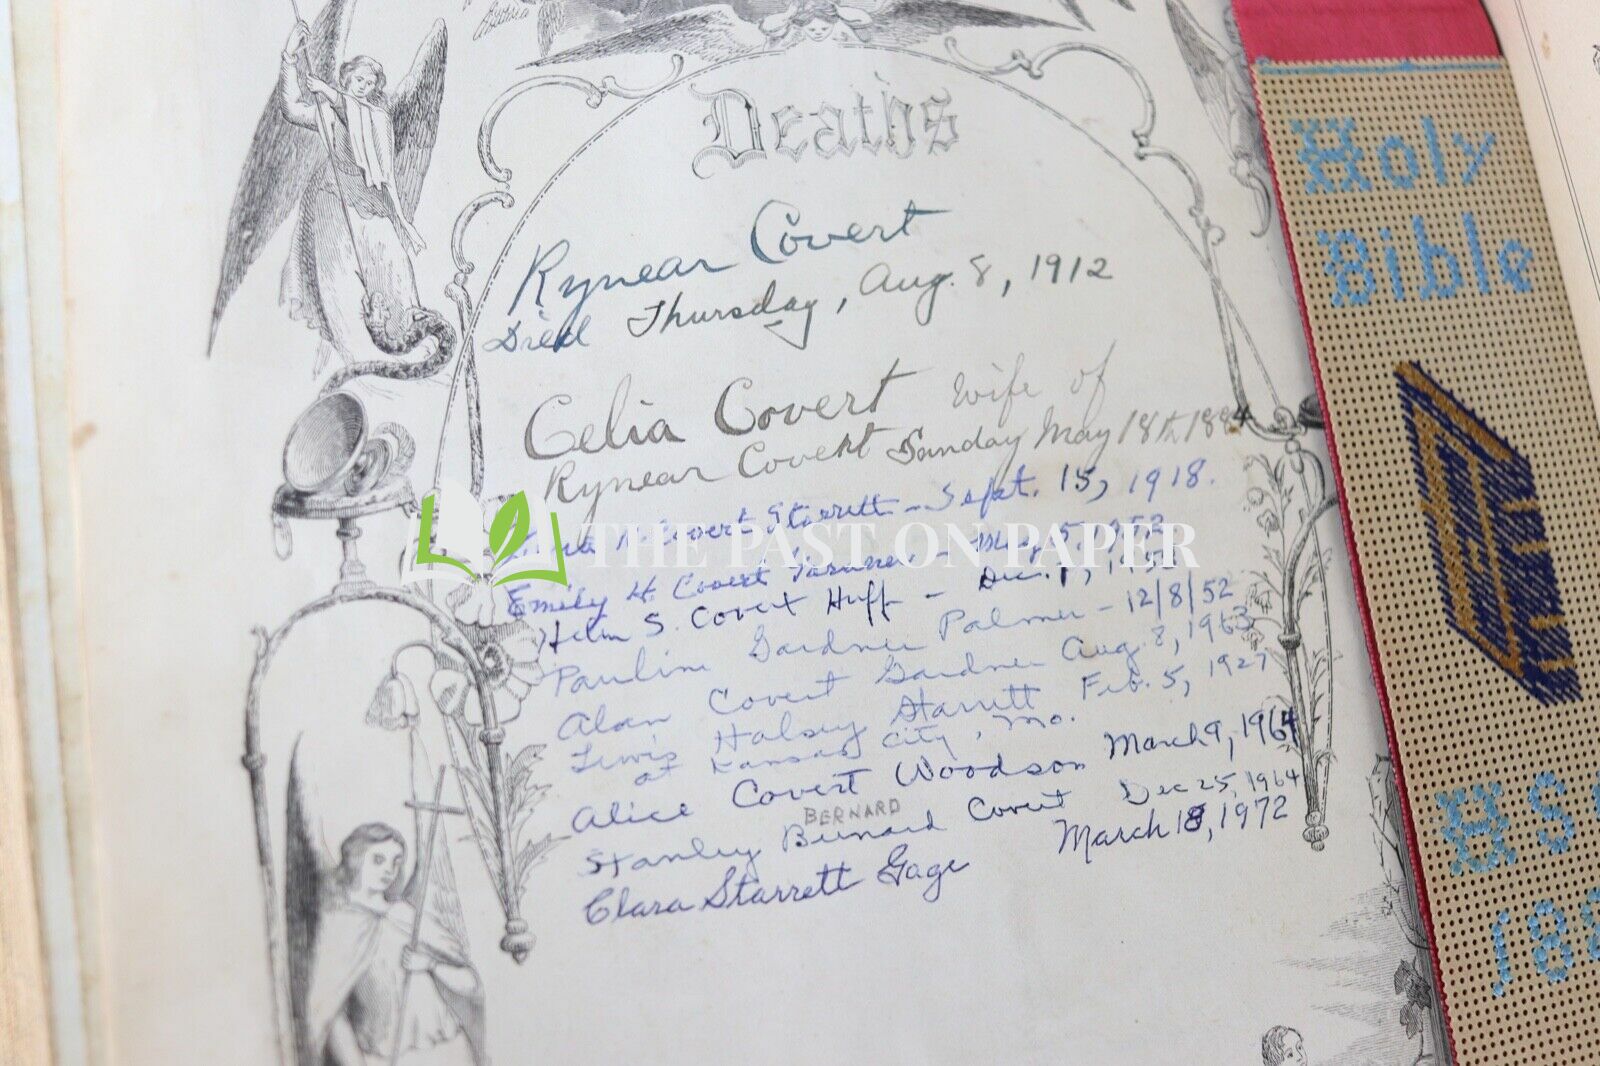 Deaths
Rynear Covert
Died Thursday, Aug. 8, 1912
Celia Covert wife of
Rynear Covert Sunday May 18th 1884
Covert Starrett - Sept. 15, 1918.
Emily H. Covert - May 5, 1953
Helen S. Covert Huff - Dec. 1,
Pauline Gardner Palmer - 12/8/52
Alan Covert Gardner Aug. 8, 1963
Lewis Halsey Starrett Feb. 5, 1927
at Kansas City, Mo.
Alice Covert Woodson March 9, 1964
BERNARD
Stanley Bernard Covert Dec 25, 1964
Clara Starrett Gage March 18, 1972
THE PAST ON PAPER
Holy
Bible